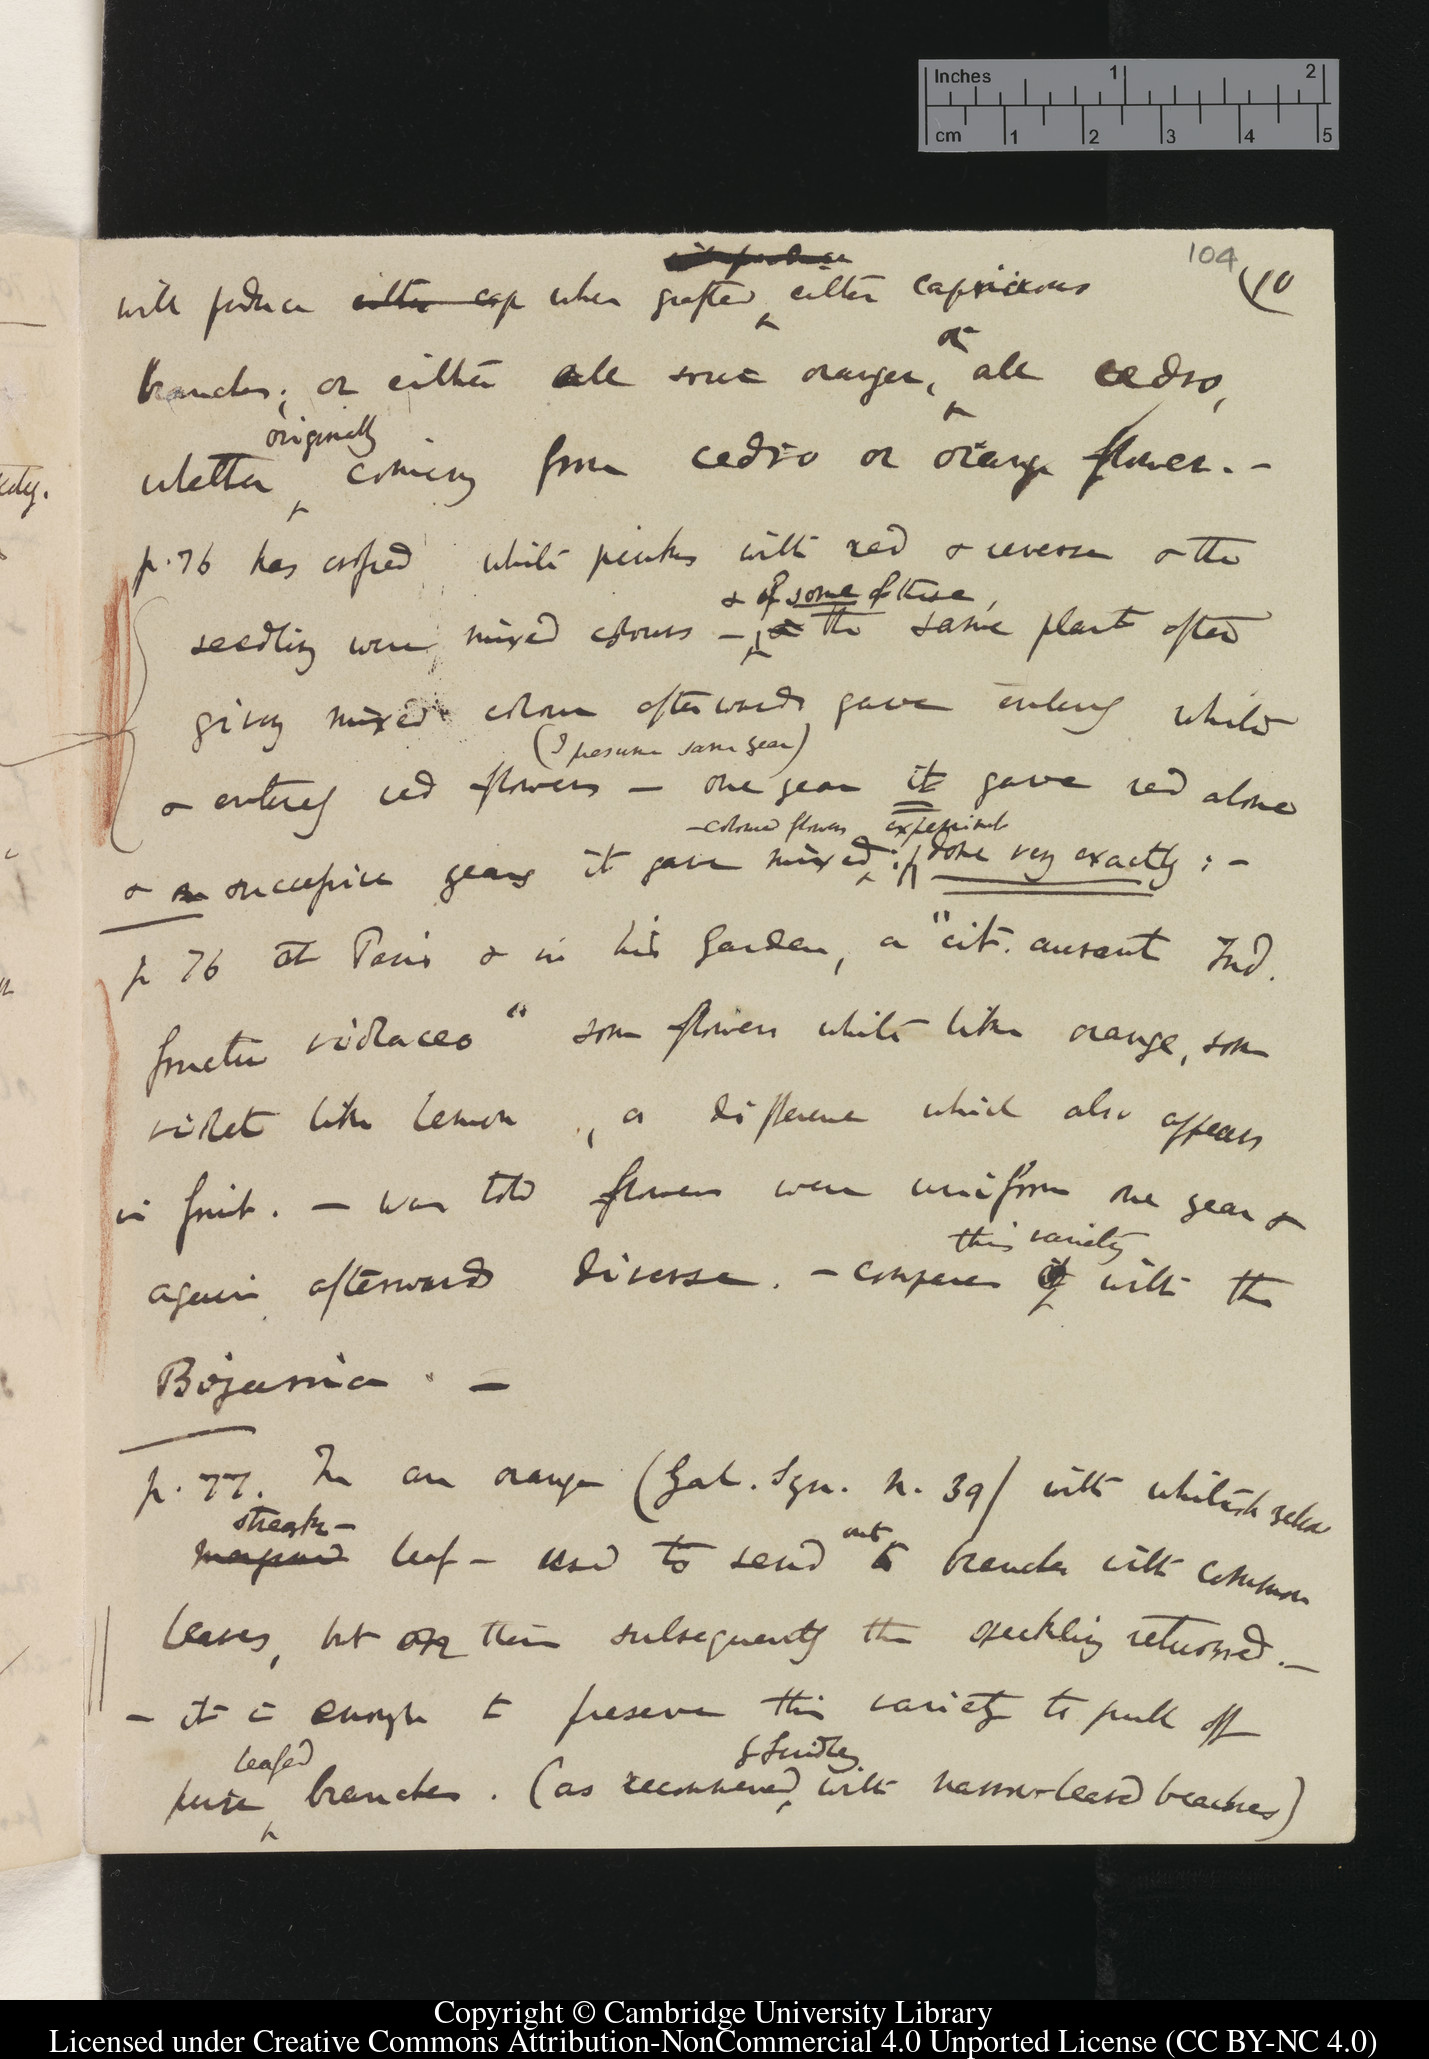 Inches 1 2
cm 1 2 3 4 5
104 (10
will produce either cap when grafted, either capricious
branches; or either all some oranges, or all cedro,
whether originally coming from cedro or orange flower. —
p. 76 has crossed white pinks with red & reverse & the
& of some of these,
seedling were mixed colours — the same plant after
giving mixed colour afterwards gave entirely white
(I presume same year)
& entirely red flowers — one year it gave red alone
—coloured flowers experiment
& on successive years it gave mixed; done very exactly: —
p 76 at Paris & in his garden, a "cit. aurant Ind.
fructu violaceo" some flowers white like orange, some
violet like lemon, a difference which also appears
in fruit. — was told flowers were uniform one year &
again afterwards diverse. — compare this variety with the
Bizarria. —
p. 77. In an orange (Gal. Syn. n. 39) with whitish yellow
streak-
leaf — used to send out branches with common
leaves, but on them subsequently the speckling returned. —
— it is enough to preserve this variety to pull off
pure leafed branches. (as recommend, by Lindley with narrow leaved beaches)
Copyright © Cambridge University Library
Licensed under Creative Commons Attribution-NonCommercial 4.0 Unported License (CC BY-NC 4.0)